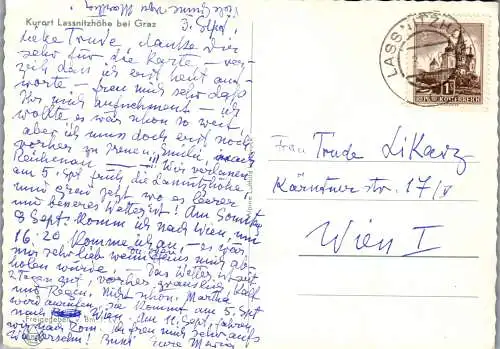 Kurort Lassnitzhöhe bei Graz
3. Sept.
liebe Trude, danke Dir
sehr für die Karte, – ver-
zeih dass ich erst heut ant-
worte – freu mich sehr daß
Ihr mich aufnehmt – ich
wollte es wär schon so weit,
aber ich muss doch erst noch
vorher zu Emilie, nach
Reichenau. Wir verlassen
am 5. Sept. früh die Lassnitzhöhe
und grad jetzt wo es leerer
und besseres Wetter ist! Am Samstag
9 Sept. komm ich nach Wien, um
16.20 komme ich an, – es wär
mir sehr lieb wenn Heinz mich ab-
holen würde, – Das Wetter ist seit
2 Tagen gut, vorher grauslich kalt
und Regen. Nicht schön. Martha
wird anrufen, sie kommt am 5. Sept
nach Wien, am 11. Sept. fahren
wir nach Rom. Freu mich sehr aufs
Wiedersehn! Bussi Eure Maria
LASSNITZ
REPUBLIK ÖSTERREICH
Frau Trude Likarz
Kärntner str. 17/V
Wien I
Freigegeben v. Bm.